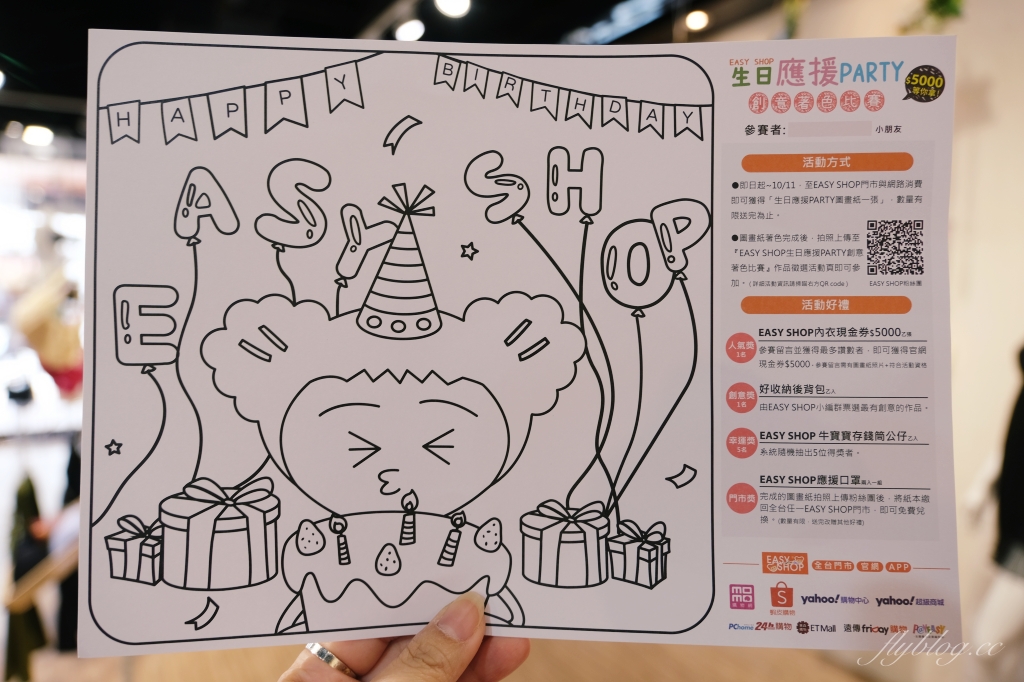 HAPPY BIRTHDAY
EASY SHOP
EASY SHOP
生日應援PARTY
$5000
等你拿
創意著色比賽
參賽者:
小朋友
活動方式
●即日起~10/11，至EASY SHOP門市與網路消費
即可獲得「生日應援PARTY圖畫紙一張」，數量有
限送完為止。
●圖畫紙著色完成後，拍照上傳至
『EASY SHOP生日應援PARTY創意
著色比賽』作品徵選活動頁即可參
加。(詳細活動資訊請掃描右方QR code)
EASY SHOP粉絲團
活動好禮
人氣獎
1名
EASY SHOP內衣現金券$5000乙張
參賽留言並獲得最多讚數者，即可獲得官網
現金券$5000。參賽留言需有圖畫紙照片+符合活動資格
創意獎
1名
好收納後背包乙入
由EASY SHOP小編群票選最有創意的作品。
幸運獎
5名
EASY SHOP 牛寶寶存錢筒公仔乙入
系統隨機抽出5位得獎者。
門市獎
EASY SHOP應援口罩兩入一組
完成的圖畫紙拍照上傳粉絲團後，將紙本繳
回全台任一EASY SHOP門市，即可免費兌
換。(數量有限，送完改贈其他好禮)
EASY SHOP 全台門市 官網 APP
momo
購物網
蝦皮購物
yahoo!購物中心
yahoo!超級商城
PChome 24h購物
ETMall
遠傳friday購物
flyblog.cc